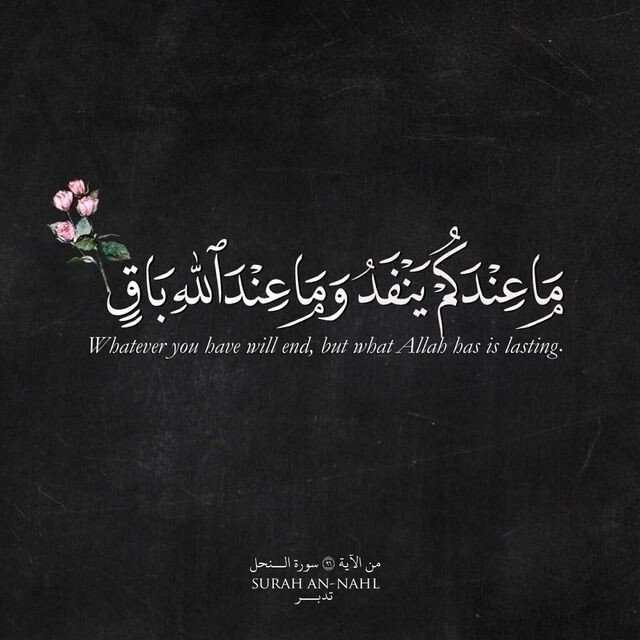 مَا عِنْدَكُمْ يَنْفَدُ وَمَا عِنْدَ ٱللَّهِ بَاقٍ
Whatever you have will end, but what Allah has is lasting.
من الآية ٩٦ سورة الـــنحل
SURAH AN-NAHL
تدبـــر